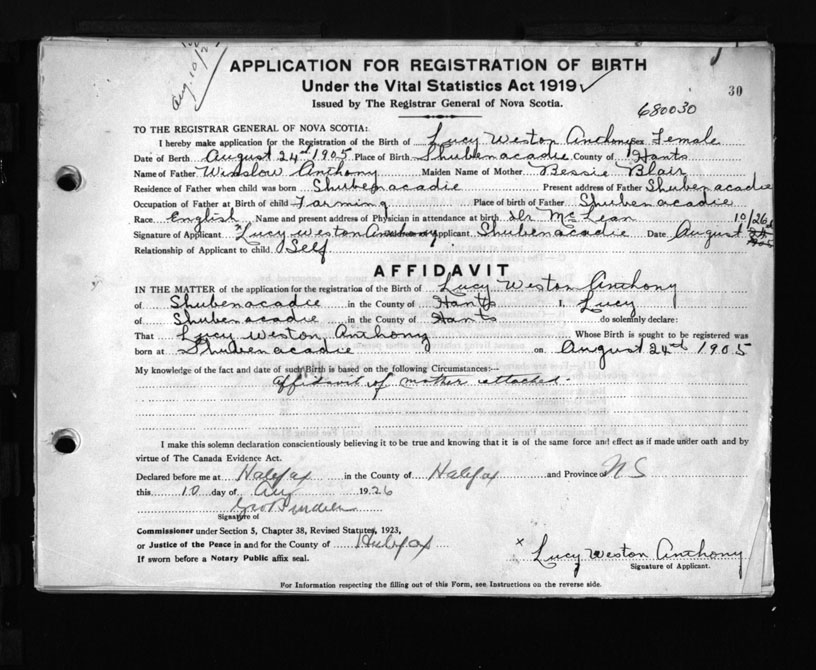 Aug. 10/26
APPLICATION FOR REGISTRATION OF BIRTH
Under the Vital Statistics Act 1919
30
Issued by The Registrar General of Nova Scotia.
680030
TO THE REGISTRAR GENERAL OF NOVA SCOTIA:
I hereby make application for the Registration of the Birth of Lucy Weston Anthony Sex Female
Date of Birth August 24th 1905 Place of Birth Shubenacadie County of Hants
Name of Father Winslow Anthony Maiden Name of Mother Bessie Blair
Residence of Father when child was born Shubenacadie Present address of Father Shubenacadie
Occupation of Father at Birth of child Farming Place of birth of Father Shubenacadie
Race English Name and present address of Physician in attendance at birth Dr McLean
Signature of Applicant Lucy Weston Anthony Applicant Shubenacadie Date August 10/26
Relationship of Applicant to child Self
AFFIDAVIT
IN THE MATTER of the application for the registration of the Birth of Lucy Weston Anthony
of Shubenacadie in the County of Hants I, Lucy
of Shubenacadie in the County of Hants do solemnly declare:
That Lucy Weston Anthony Whose Birth is sought to be registered was
born at Shubenacadie on August 24th 1905
My knowledge of the fact and date of such Birth is based on the following Circumstances:—
affidavit of mother attached.
I make this solemn declaration conscientiously believing it to be true and knowing that it is of the same force and effect as if made under oath and by
virtue of The Canada Evidence Act.
Declared before me at Halifax in the County of Halifax and Province of NS
this 10 day of Aug 1926
Signature of
Commissioner under Section 5, Chapter 38, Revised Statutes, 1923,
or Justice of the Peace in and for the County of Halifax
If sworn before a Notary Public affix seal.
x Lucy Weston Anthony
Signature of Applicant.
For Information respecting the filling out of this Form, see Instructions on the reverse side.